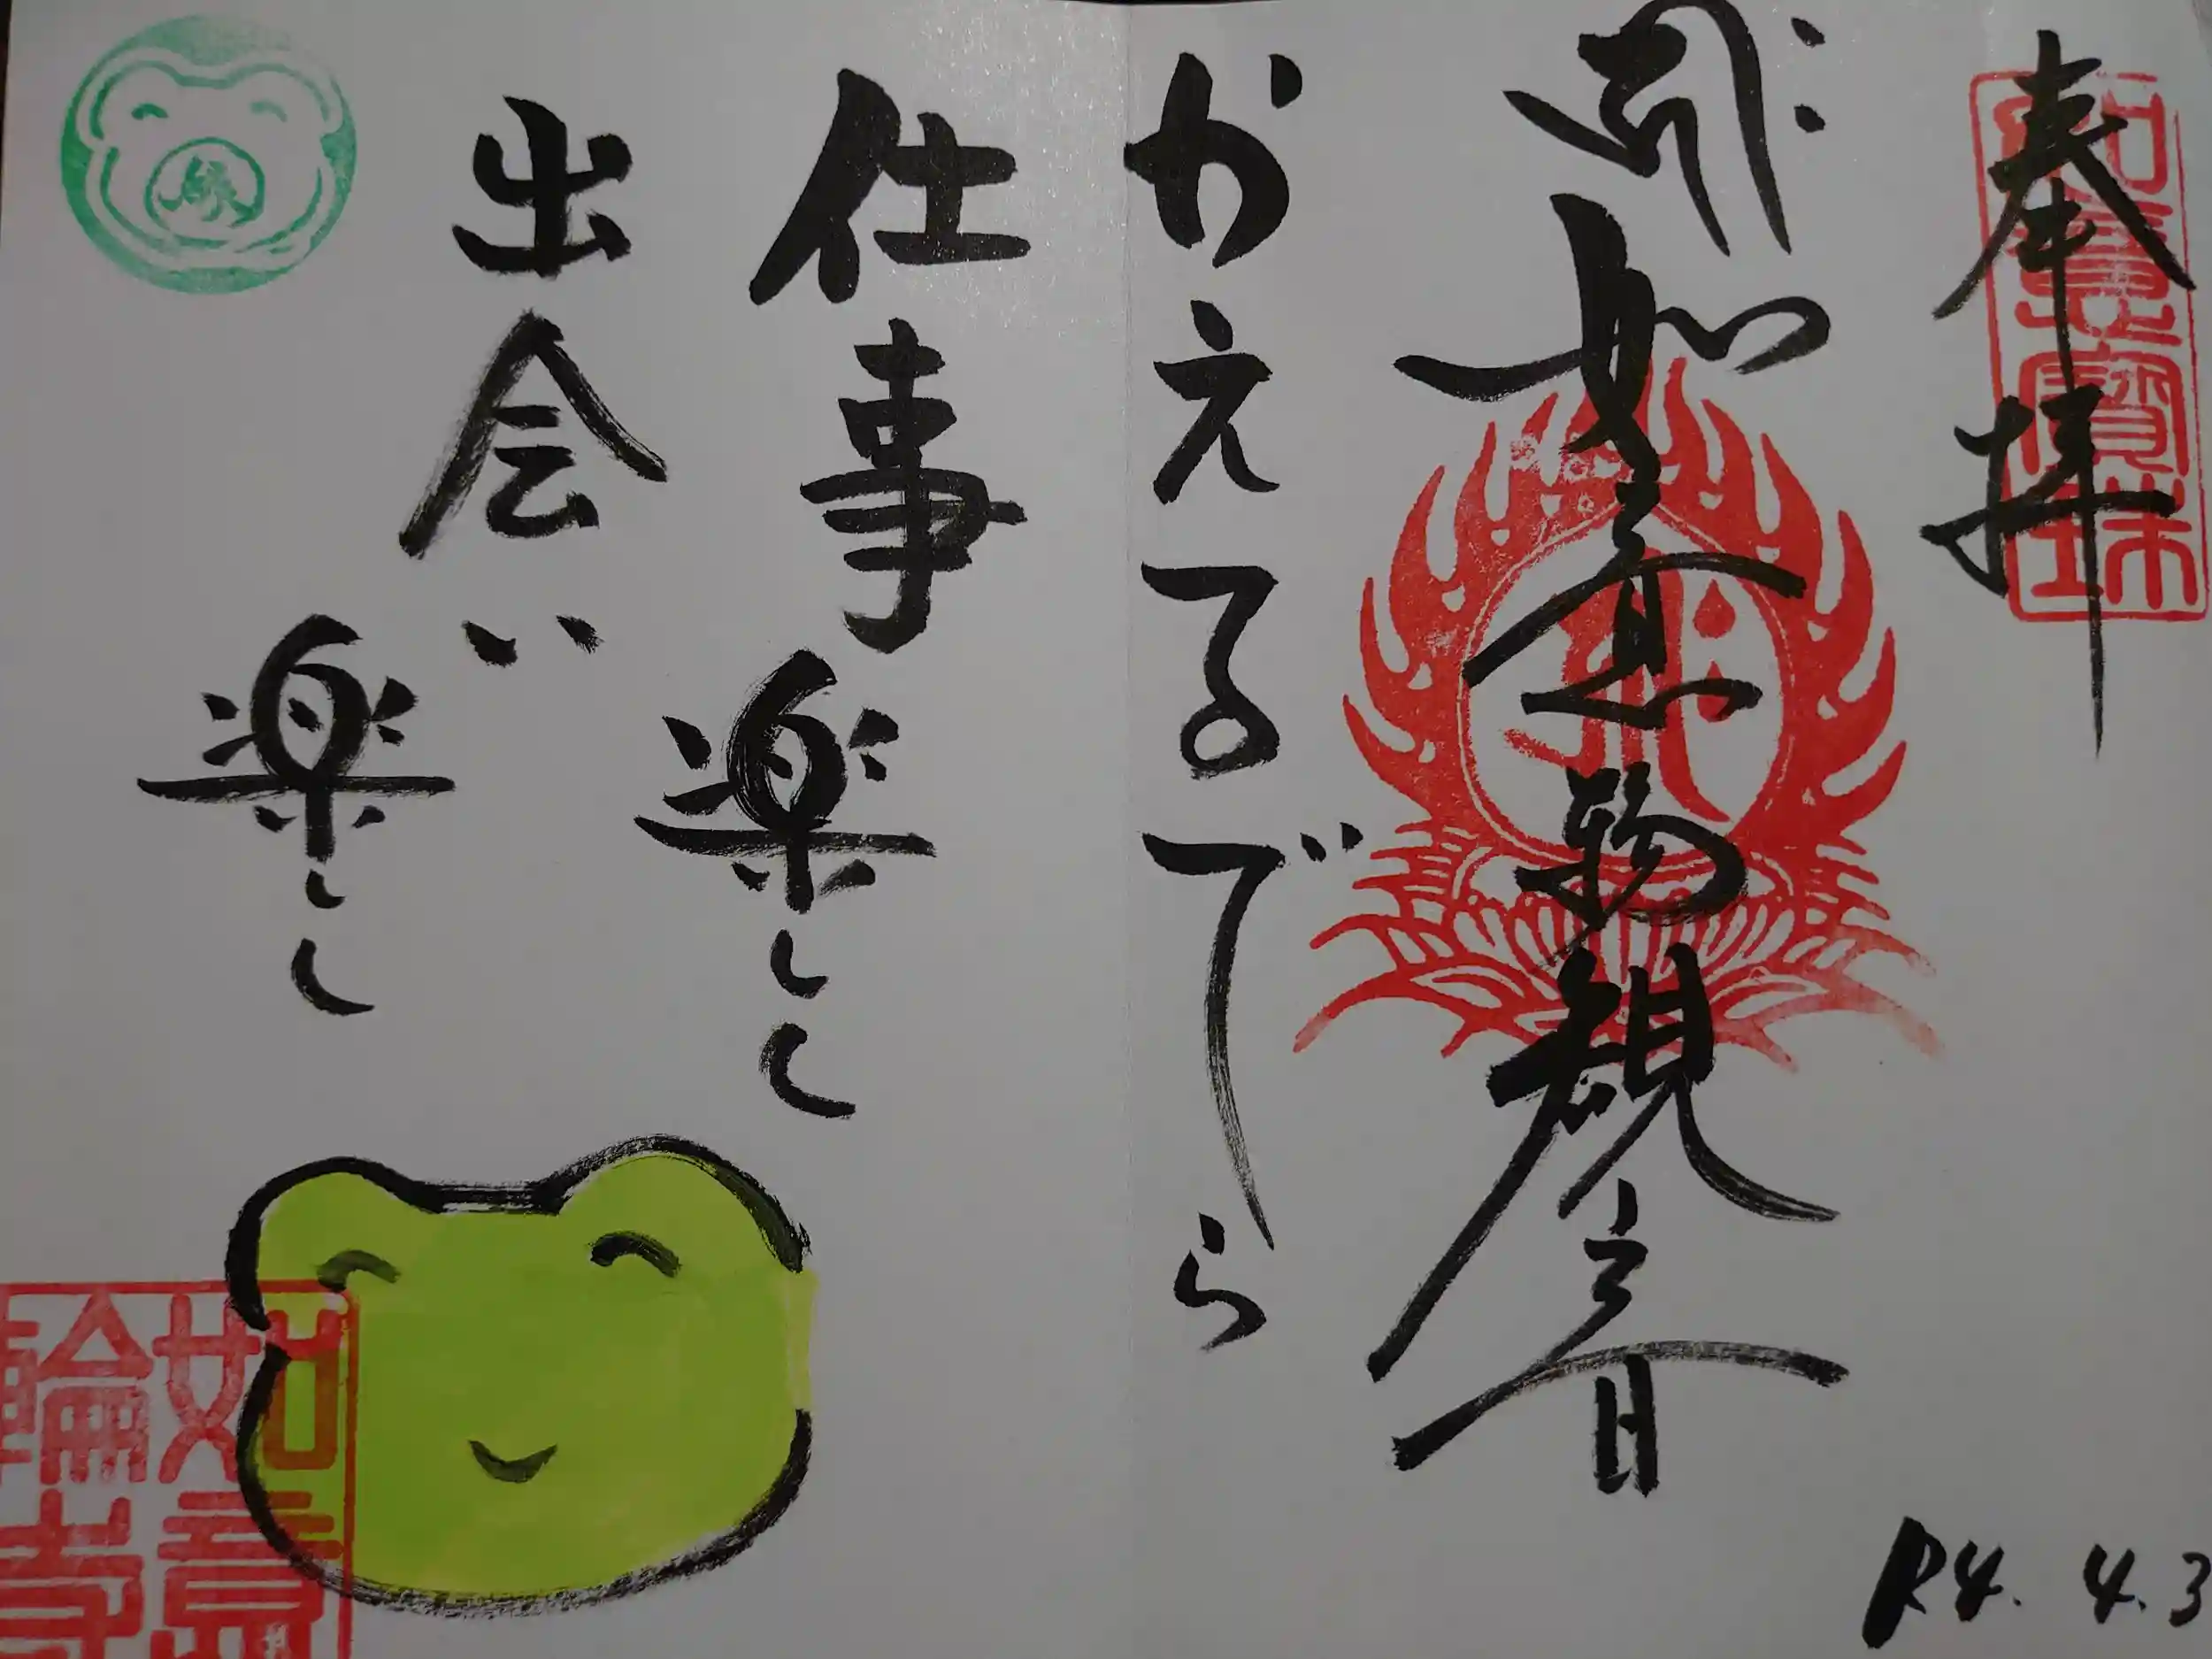 奉拝
如意寶珠
如意輪観音
かえるでら
仕事楽しし
出会い楽しし
縁
如意輪寺
R4.4.3